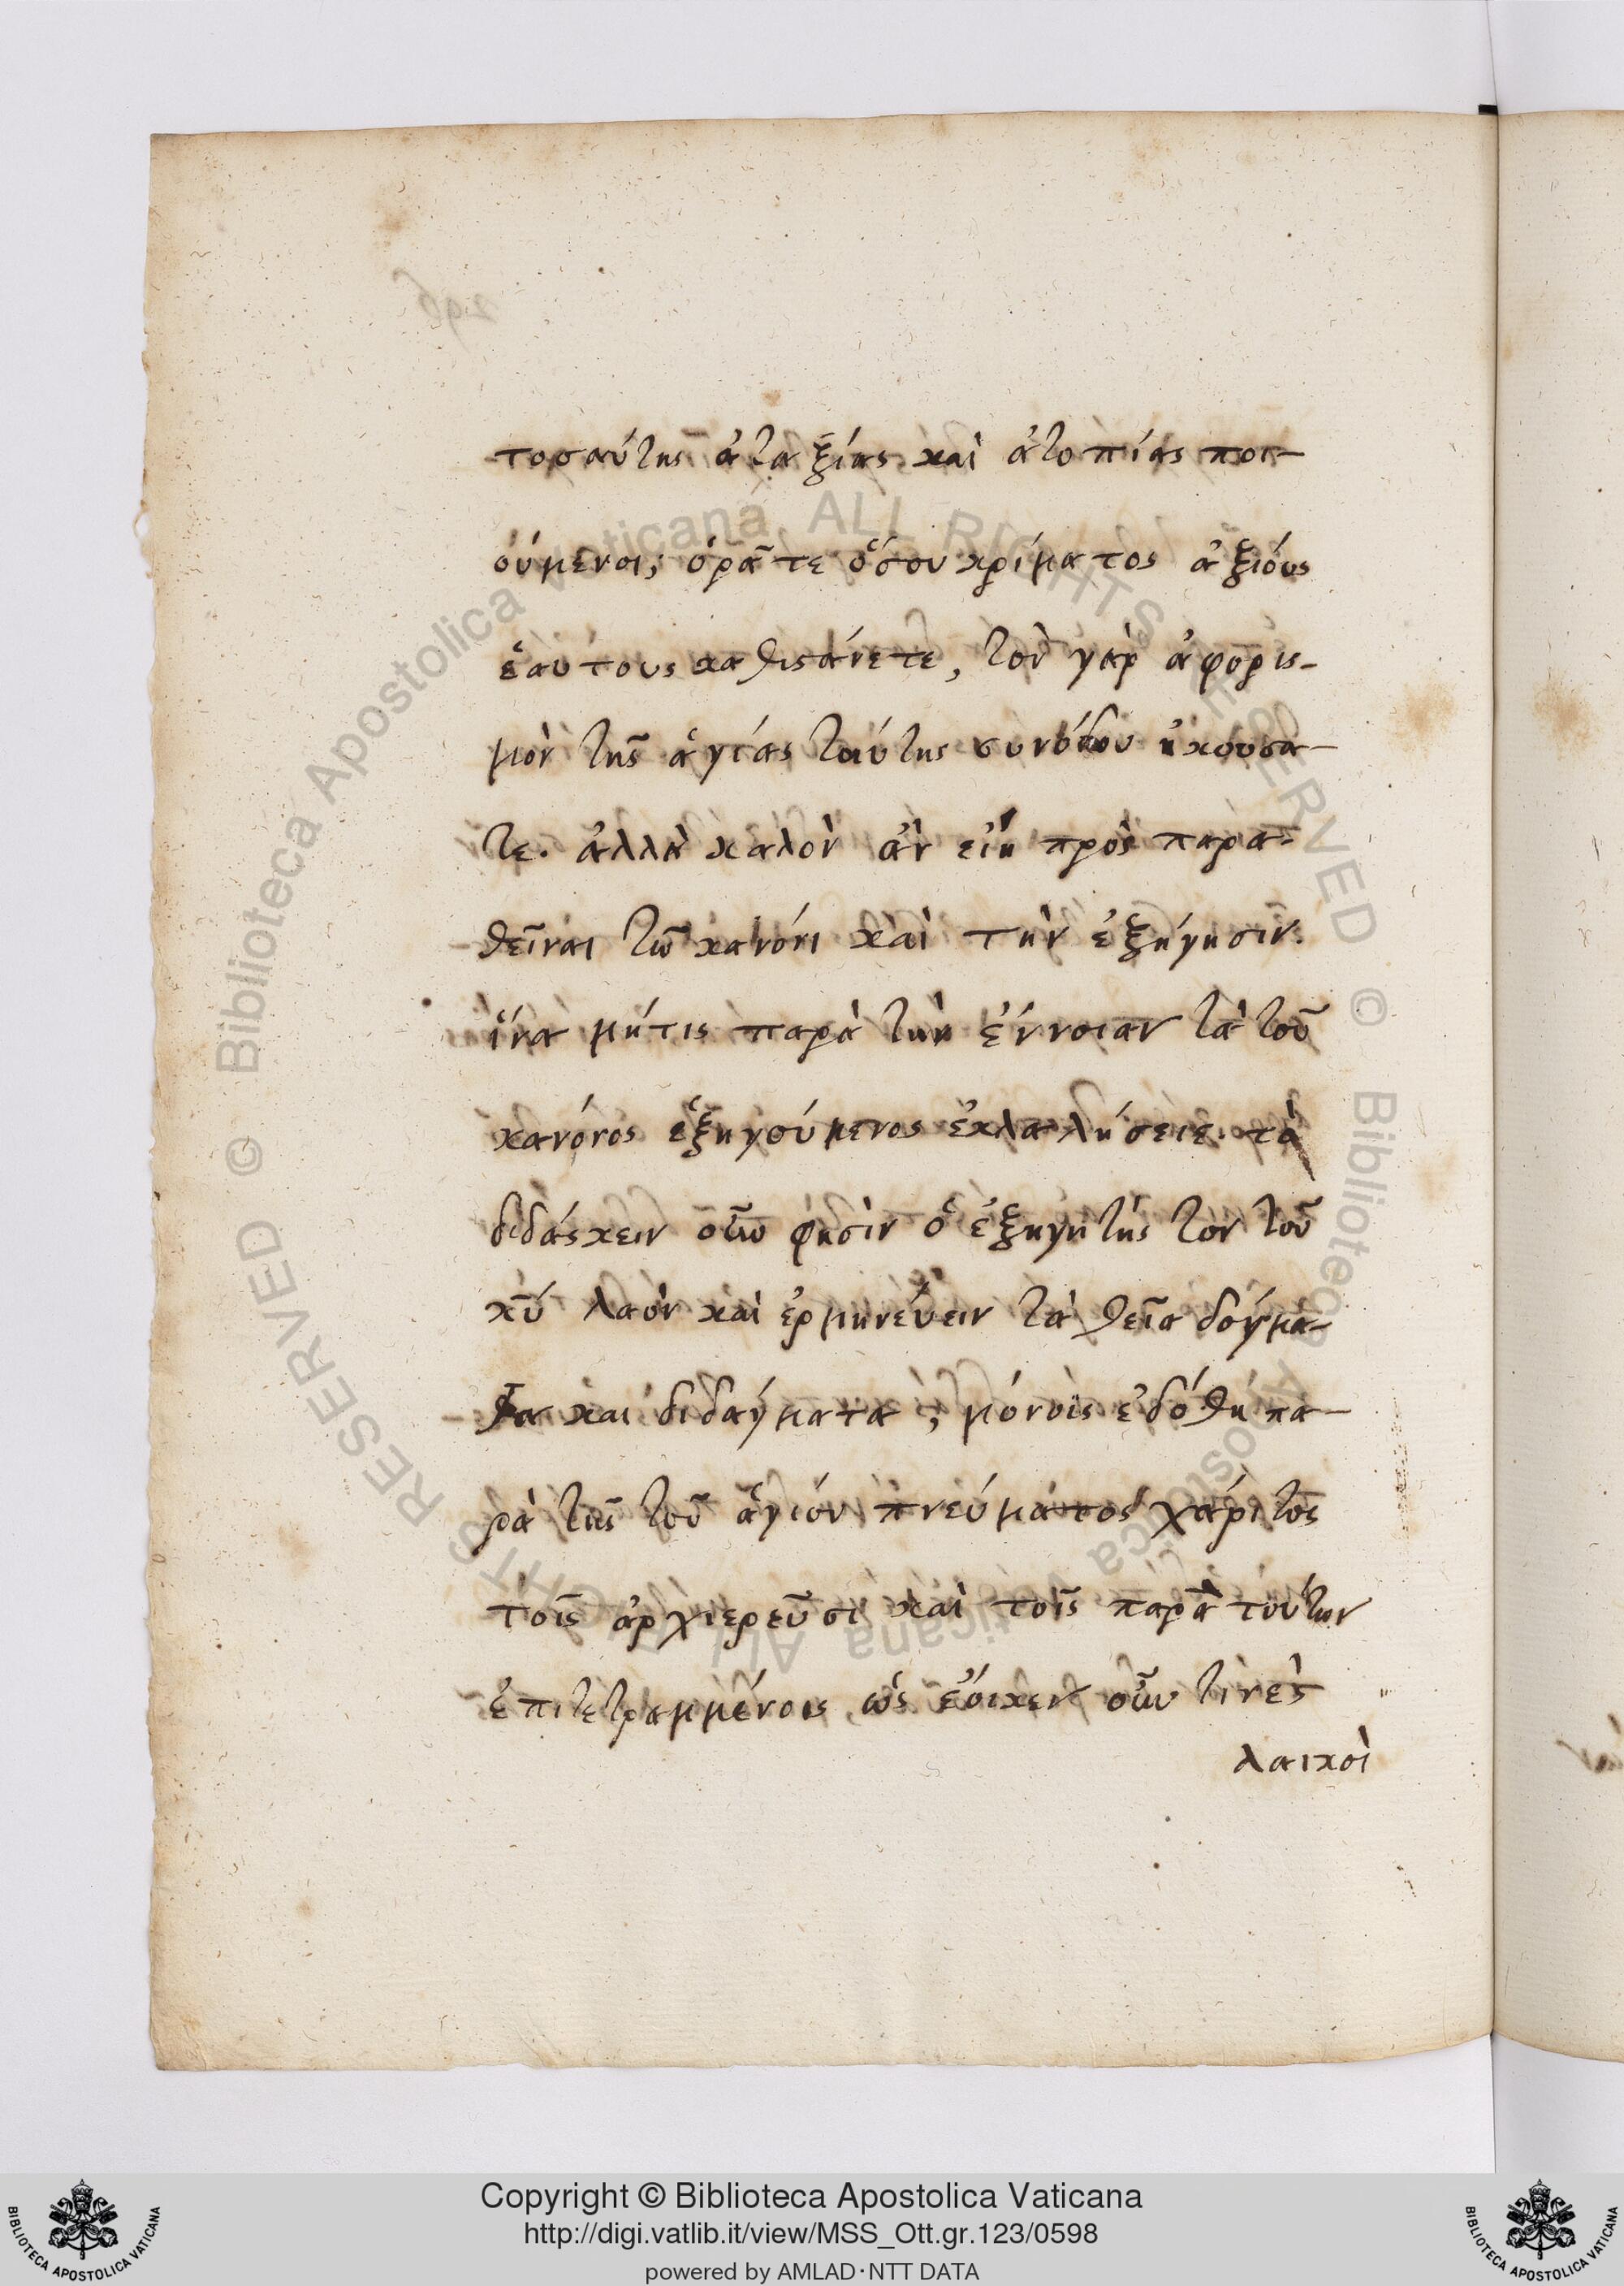 τοσαύτης ἀταξίας καὶ ἀτοπίας ποι-
ούμενοι; ὁρᾶτε ὅσου κρίματος ἀξιόυς
ἑαύτους καθιστάνετε, τὸν γὰρ ἀφορισ-
μὸν τῆς ἁγίας ταύτης συνόδου ἠκούσα-
τε. ἀλλὰ καλὸν ἂν εἴη πρὸς παρα-
θεῖναι τῶ κανόνι καὶ τὴν ἐξήγησιν.
ἵνα μήτις παρὰ τὴν ἔννοιαν τὰ τοῦ
κανόνος ἐξηγούμενος ἐκλαλήσειε. τὸ
διδάσκειν οὖν φησὶν ὁ ἐξηγητής τὸν τοῦ
χῦ λαὸν καὶ ἑρμηνεύειν τὰ θεῖα δόγμα-
τα καὶ διδάγματα, μόνοις ἐδόθη πα-
ρὰ τῆς τοῦ ἁγίου πνεύματος χάριτος
τοῖς ἀρχιερεῦσι καὶ τοῖς παρὰ τούτων
ἐπιτετραμμένοις, ὡς ἔοικεν οὖν τινὲς
λαικοὶ
Copyright © Biblioteca Apostolica Vaticana
http://digi.vatlib.it/view/MSS_Ott.gr.123/0598
powered by AMLAD·NTT DATA
BIBLIOTECA APOSTOLICA VATICANA
BIBLIOTECA APOSTOLICA VATICANA
© Biblioteca Apostolica Vaticana ALL RIGHTS RESERVED
© Biblioteca Apostolica Vaticana ALL RIGHTS RESERVED